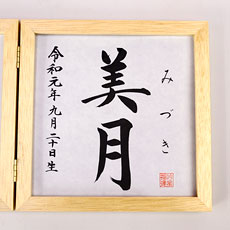 みづき
美月
令和元年九月二十日生